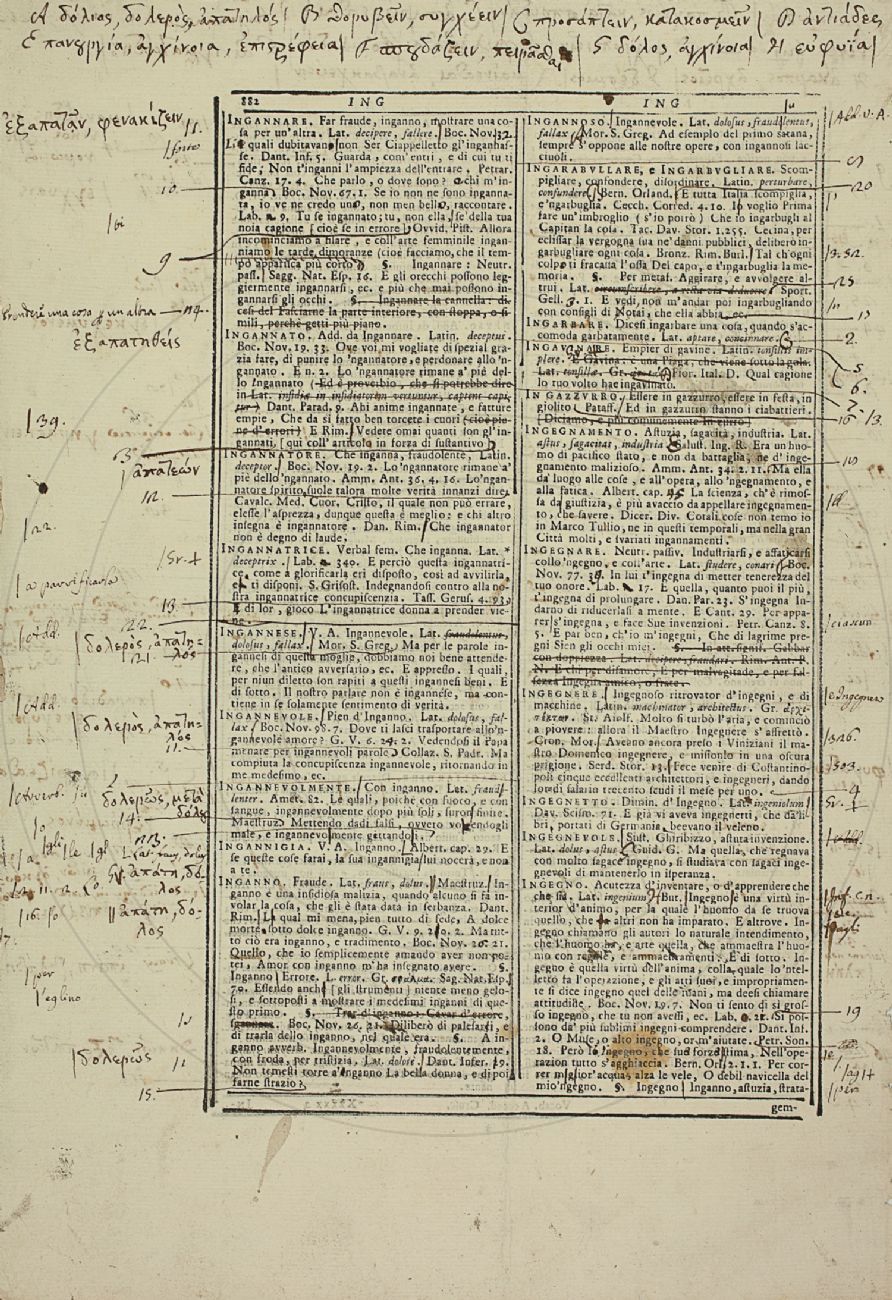 A δόλιος, δολερὸς, ἀπατηλός| B θορυβεῖν, συγχέειν| C προσάπτειν, κατακοσμεῖν| D ἀντιάδες
E πανουργία, ἀγχίνοια, ἐπιτρέφεια| F σπουδάζειν, πειρᾶσθαι G δόλος, ἀγχίνοια| H εὐφυΐα|
882 ING
INGANNARE. Far fraude, inganno, mostrare una co-
sa per un'altra. Lat. decipere, fallere. Boc. Nov. 32.
quali dubitavano non Ser Ciappelletto gl'inganhas-
se. Dant. Inf. 5. Guarda, com'entri, e di cui tu ti
fide; Non t'inganni l'ampiezza dell'entrare. Petrar.
Canz. 17. 4. Che parlo, o dove sono? o chi m'in-
ganna? Boc. Nov. 67. 1. Se io non ne sono inganna-
ta, io ve ne credo uno, non men bello, raccontare.
Lab. 9. Tu se ingannato; tu, non ella, se della tua
noia cagione (cioè se in errore) Ovvid. Pist. Allora
incominciamo a filare, e coll'arte femminile ingan-
niamo le tarde dimoranze (cioè facciamo, che il tem-
po apparisca più corto) §. Ingannare: Neutr.
pass. Sagg. Nat. Esp. 16. E gli orecchi possono leg-
giermente ingannarsi, ec. e più che mai possono in-
gannarsi gli occhi. §. Ingannare la cannella: di-
cesi del Fasciarne la parte interiore, con stoppa, o si-
mili, perchè getti più piano.
INGANNATO. Add. da Ingannare. Latin. deceptus.
Boc. Nov. 19. 33. Ove voi mi vogliate di spezial gra-
zia fare, di punire lo 'ngannatore, e perdonare allo 'n-
gannato. E n. 2. Lo 'ngannatore rimane a' piè del-
lo Ingannato (Ed è proverbio, che si potrebbe dire
in Lat. insidia in insidiatorem vertuntur, captent capi-
tur) Dant. Parad. 9. Ahi anime ingannate, e fatture
empie, Che da sì fatto ben torcete i cuori (cioè pie-
ne d'errori) E Rim. Vedete omai quanti son gl'in-
gannati, [qui coll' articolo in forza di sustantivo]
INGANNATORE. Che inganna, fraudolente, Latin.
deceptor. Boc. Nov. 19. 2. Lo 'ngannatore rimane a'
piè dello 'ngannato. Amm. Ant. 36. 4. 16. Lo 'ngan-
natore spirito suole talora molte verità innanzi dire.
Cavalc. Med. Cuor. Cristo, il quale non può errare,
elesse l'asprezza, dunque questa è meglio: e chi altro
insegna è ingannatore. Dan. Rim. Che ingannator
non è degno di laude.
INGANNATRICE. Verbal fem. Che inganna. Lat.
deceptrix. Lab. 340. E perciò questa ingannatri-
ce, come a glorificarla eri disposto, così ad avvilirla,
e ti disponi. S. Grisost. Indegnandosi contro alla no-
stra ingannatrice concupiscenzia. Tass. Gerus. 4. 93.
E di lor, gioco L'ingannatrice donna a prender vie-
ne.
INGANNESE. V. A. Ingannevole. Lat. fraudolentus,
dolosus, fallax. Mor. S. Greg. Ma per le parole in-
gannesi di questa moglie, dobbiamo noi bene attende-
re, che l'antico avversario, ec. E appresso. I quali,
per niun diletto son rapiti a questi ingannesi beni. E
di sotto. Il nostro parlare non è ingannese, ma con-
tiene in se solamente sentimento di verità.
INGANNEVOLE. Pien d'Inganno. Lat. dolosus, fal-
lax. Boc. Nov. 98. 7. Dove ti lasci trasportare allo 'n-
gannevole amore? G. V. 6. 24. 2. Vedendosi il Papa
menare per ingannevoli parole. Collaz. S. Padr. Ma
compiuta la concupiscenza ingannevole, ritornando in
me medesimo, ec.
INGANNEVOLMENTE. Con inganno. Lat. fraudu-
lenter. Amet. 82. Le quali, poichè con fuoco, e con
sangue, ingannevolmente dopo più soli, furon finite.
Maestruz. Mettendo dadi falsi, ovvero volgendogli
male, e ingannevolmente gettandogli.
INGANNIGIA. V. A. Inganno. Albert. cap. 29. E
se queste cose farai, la sua ingannigia lui nocerà, e non
a te.
INGANNO. Fraude. Lat. fraus, dolus. Maestruz. In-
ganno è una insidiosa malizia, quando alcuno si fa in-
volar la cosa, che gli è stata data in serbanza. Dant.
Rim. La qual mi mena, pien tutto di fede, A dolce
morte, sotto dolce inganno. G. V. 9. 2. Ma tut-
to ciò era inganno, e tradimento. Boc. Nov. 20. 21.
Quello, che io semplicemente amando aver non po-
tei, Amor con inganno m'ha insegnato avere. §.
Inganno. Errore. L. error. Gr. σφάλμα. Sag. Nat. Esp.
70. Essendo anche gli strumenti niente meno gelo-
si, e sottoposti a mostrare i medesimi inganni di que-
sto primo. §. Trar d'inganno: Cavar d'errore,
sgannare. Boc. Nov. 26. 21. Diliberò di palesarsi, e
di trarla dello inganno, nel quale era. §. A in-
ganno avverb. Ingannevolmente, fraudolentemente,
con froda, per tristizia, Lat. dolose. Dant. Infer. 19.
Non temesti torre a 'nganno La bella donna, e di poi
farne strazio?
ING
INGANNOSO. Ingannevole. Lat. dolosus, fraudulentus,
fallax. Mor. S. Greg. Ad esemplo del primo satana,
sempre s'oppone alle nostre opere, con ingannosi lac-
ciuoli.
INGARABULLARE, e INGARBUGLIARE. Scom-
pigliare, confondere, disordinare. Latin. perturbare,
confundere. Bern. Orland. E tutta Italia scompiglia,
e 'ngarbuglia. Cecch. Corred. 4. 10. Io voglio Prima
fare un'imbroglio (s'io potrò) Che io ingarbugli al
Capitan la cosa. Tac. Dav. Stor. 1. 255. Cecina, per
eclissar la vergogna sua ne' danni pubblici, deliberò in-
garbugliare ogni cosa. Bronz. Rim. Burl. Tal ch'ogni
colpo ti fracassa l'ossa Del capo, e t'ingarbuglia la me-
moria. §. Per metaf. Aggirare, e avvolgere al-
trui. Lat. circumscribere Sport.
Gell. 3. 1. E vedi, non m'andar poi ingarbugliando
con consigli di Notai, che ella abbia, ec.
INGARBARE. Dicesi ingarbare una cosa, quando s'ac-
comoda garbatamente. Lat. aptare, concinnare.
INGAVINARE. Empier di gavine. Latin. tonsillis im-
plere. E Gavina: è una Piaga, che viene sotto la gola.
Lat. tonsillæ. Gr. Fior. Ital. D. Qual cagione
lo tuo volto hae ingavinato.
IN GAZZURRO. Essere in gazzurro, essere in festa, in
giolito. Pataff. Ed in gazzurro stanno i ciabattieri.
[Diciamo, e più comunemente In zurro]
INGEGNAMENTO. Astuzia, sagacità, industria. Lat.
astus, sagacitas, industria. Salust. Iug. R. Era un huo-
mo di pacifico stato, e non da battaglia, ne d' inge-
gnamento malizioso. Amm. Ant. 34. 2. 11. Ma ella
dà luogo alle cose, e all'opera, allo 'ngegnamento, e
alla fatica. Albert. cap. La scienza, ch' è rimos-
sa da giustizia, è più avaccio da appellare ingegnamen-
to, che savere. Dicer. Div. Cotali cose non temo io
in Marco Tullio, ne in questi temporali, ma nella gran
Città molti, e svariati ingannamenti.
INGEGNARE. Neutr. passiv. Industriarsi, e affaticarsi
collo 'ngegno, e coll'arte. Lat. studere, conari. Boc.
Nov. 77. 38. In lui t'ingegna di metter tenerezza del
tuo onore. Lab. 17. E quella, quanto puoi il più,
t'ingegna di prolungare. Dan. Par. 23. S'ingegna In-
darno di riducerlasi a mente. E Cant. 29. Per appa-
rer, s'ingegna, e face Sue invenzioni. Petr. Canz. 8.
5. E par ben, ch'io m'ingegni, Che di lagrime pre-
gni Sien gli occhi miei. §. In att. signif. Gabbar
con doppiezza. Lat. decipere, fraudare. Rim. Ant. P.
N. E chi per disamore, E per malvagitade, e per fal-
sezza Ingegna punto, o frate.
INGEGNERE. Ingegnoso ritrovator d'ingegni, e di
macchine. Latin. machinator, architectus. Gr. ἀρχι-
τέκτων. St. Aiolf. Molto si turbò l'aria, e cominciò
a piovere: allora il Maestro Ingegnere s'affrettò.
Cron. Mor. Aveano ancora preso i Viniziani il ma-
stro Domenico ingegnere, e missonlo in una oscura
prigione. Serd. Stor. 13. Fece venire di Costantino-
poli cinque eccellenti architettori, e ingegneri, dando
loro di salario trecento scudi il mese per uno.
INGEGNETTO. Dimin. d'Ingegno. Lat. ingeniolum.
Dav. Scism. 71. E già vi aveva ingegnetti, che da li-
bri, portati di Germania, beevano il veleno.
INGEGNEVOLE. Sust. Ghiribizzo, astuta invenzione.
Lat. dolus, astus. Guid. G. Ma quella, che regnava
con molto sagace ingegno, si studiava con sagaci inge-
gnevoli di mantenerlo in isperanza.
INGEGNO. Acutezza d'inventare, o d'apprendere che
che sia. Lat. ingenium. But. Ingegno è una virtù in-
terior d'animo, per la quale l'huomo da se truova
quello, che da altri non ha imparato. E altrove. In-
gegno chiamano gli autori lo naturale intendimento,
che l'huomo ha, e arte quella, che ammaestra l'huo-
mo con regole, e ammaestramenti. E di sotto. In-
gegno è quella virtù dell'anima, colla quale lo 'ntel-
letto fa l'operazione, e gli atti suoi, e impropriamen-
te si dice ingegno quel delle mani, ma deesi chiamare
attitudine. Boc. Nov. 19. 7. Non ti sento di sì gros-
so ingegno, che tu non avessi, ec. Lab. 21. Si pos-
sono da' più sublimi ingegni comprendere. Dant. Inf.
2. O Muse, o alto ingegno, or m'aiutate. Petr. Son.
18. Però lo Ingegno, che sua forza stima, Nell'ope-
razion tutto s'agghiaccia. Bern. Orl. 2. 1. 1. Per cor-
rer miglior' acqua, alza le vele, O debil navicella del
mio 'ngegno. §. Ingegno. Inganno, astuzia, strata-
gem-
ἐξαπατᾶν, φενακίζειν
ἐξαπατηθείς
ἀπατεών
δολερὸς, ἀπατη-
λός
δολερὸς, ἀπατη-
λός
ἀπάτη, δό-
λος
δολερῶς